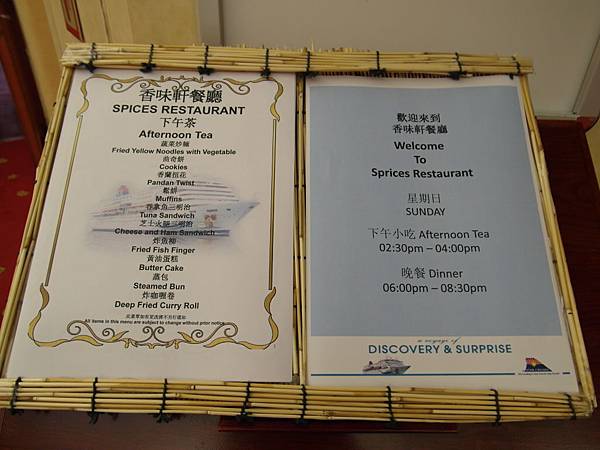 香味軒餐廳
SPICES RESTAURANT
下午茶
Afternoon Tea
蔬菜炒麵
Fried Yellow Noodles with Vegetable
曲奇餅
Cookies
香蘭扭花
Pandan Twist
鬆餅
Muffins
吞拿魚三明治
Tuna Sandwich
芝士火腿三明治
Cheese and Ham Sandwich
炸魚柳
Fried Fish Finger
黃油蛋糕
Butter Cake
蒸包
Steamed Bun
炸咖喱卷
Deep Fried Curry Roll
此菜單如有更改將不另行通知
All items in this menu are subject to change without prior notice.
歡迎來到
香味軒餐廳
Welcome
To
Sprices Restaurant
星期日
SUNDAY
下午小吃 Afternoon Tea
02:30pm – 04:00pm
晚餐 Dinner
06:00pm – 08:30pm
a voyage of
DISCOVERY & SURPRISE
STAR CRUISES